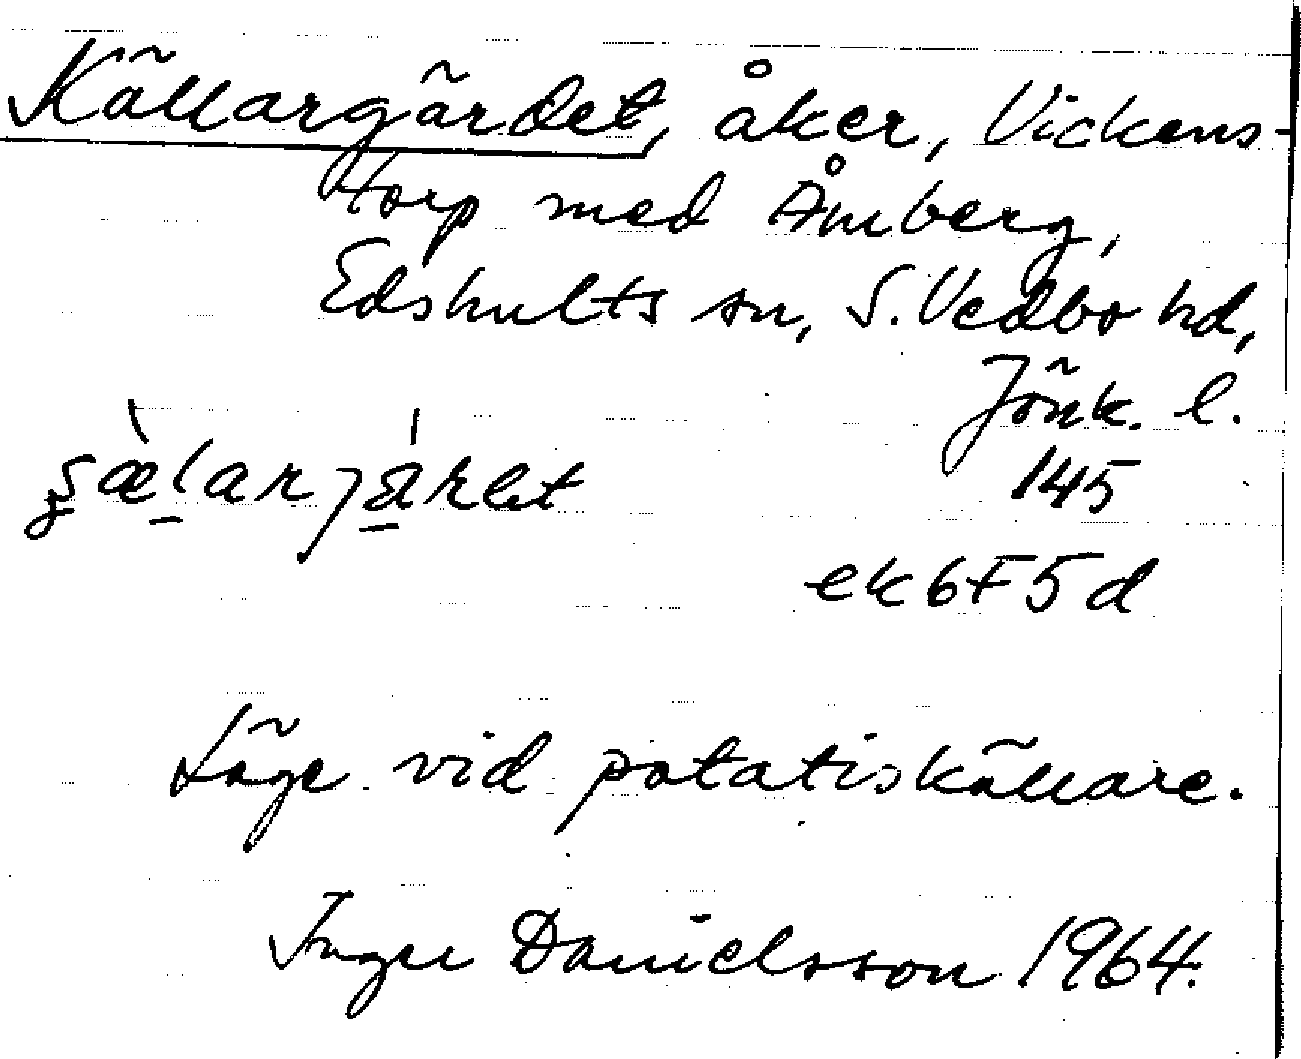 Källargärdet, åker, Vickens-
torp med Åmberg,
Edshults sn, S. Vedbo hd,
Jönk. l.
145
ek 6F5d
Läge vid potatiskällare.
Inger Danielsson 1964.